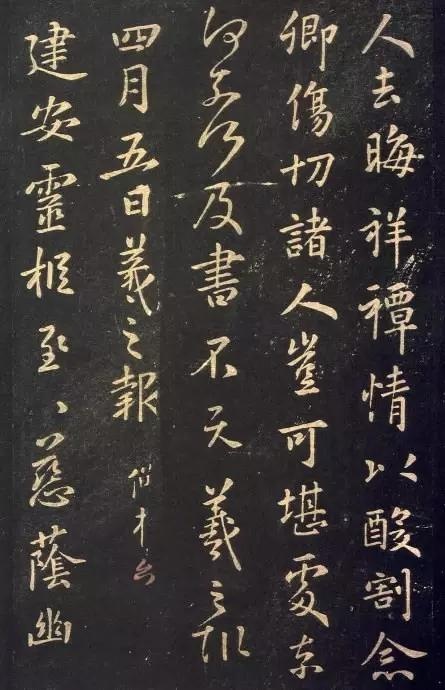 人去晦祥禫情以酸割念
卿傷切諸人豈可堪處奈
何奈何及書不次羲之報
四月五日羲之報
建安靈柩至慈蔭幽